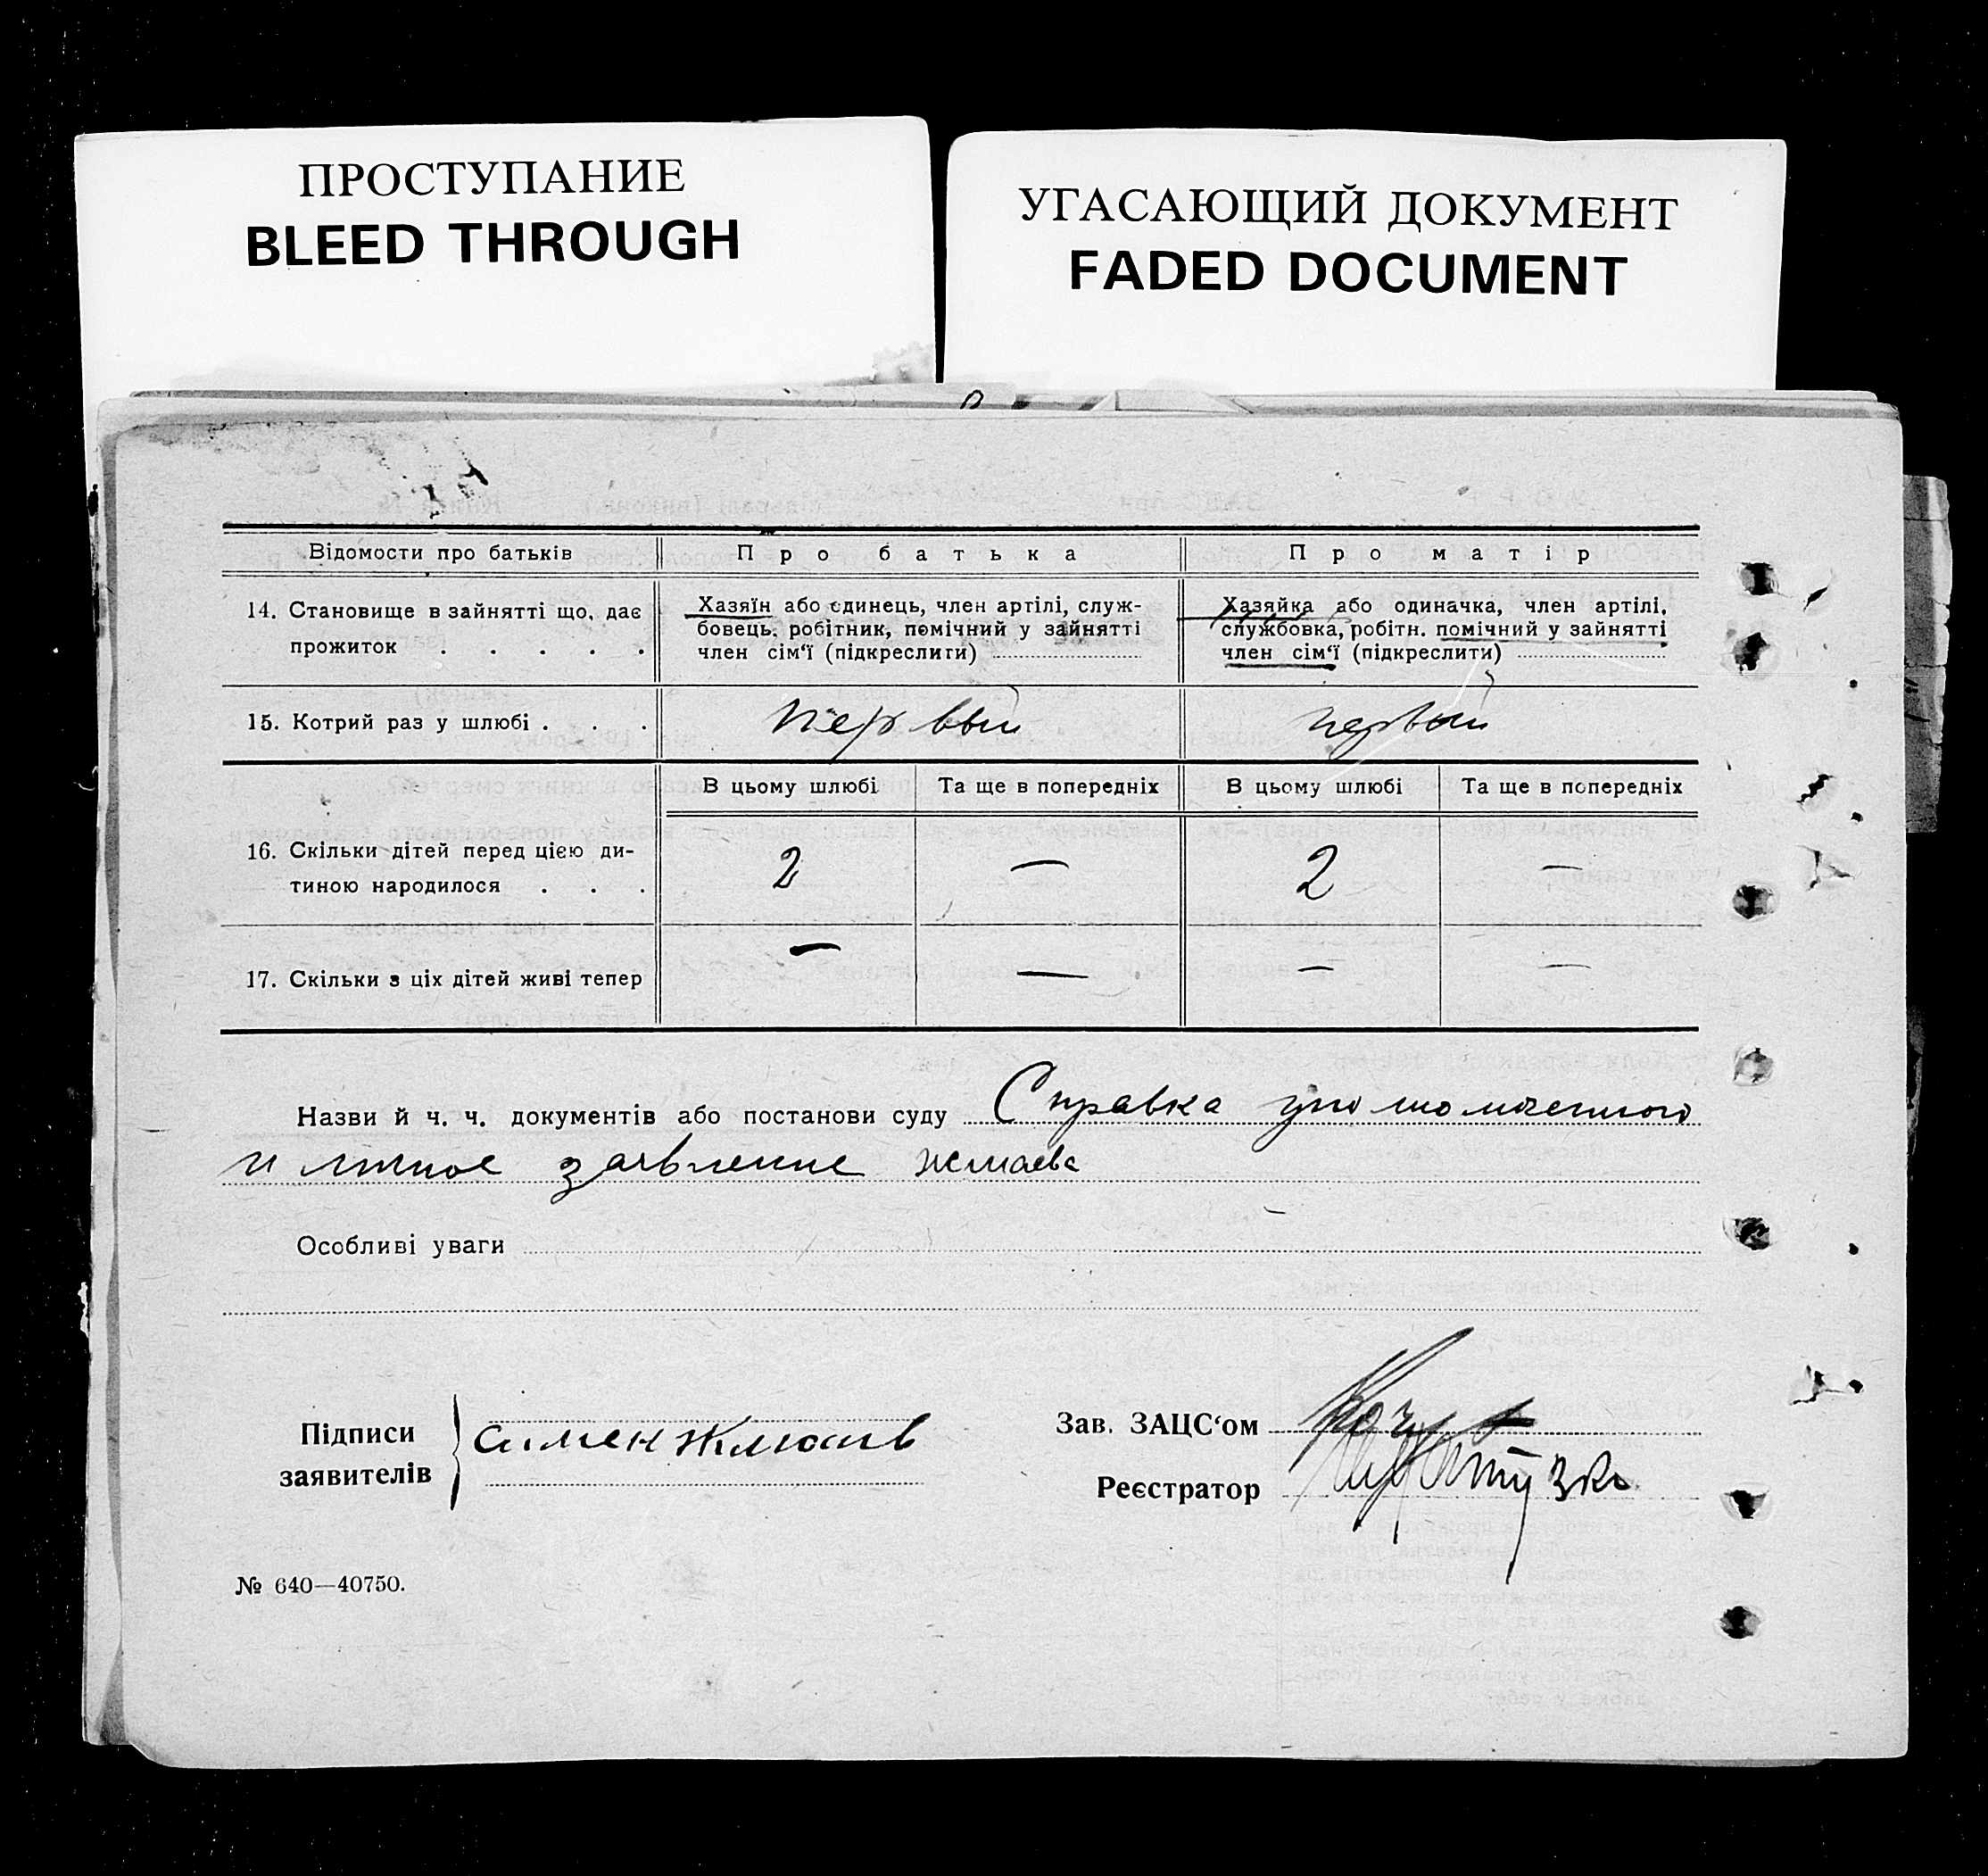 ПРОСТУПАНИЕ
BLEED THROUGH
УГАСАЮЩИЙ ДОКУМЕНТ
FADED DOCUMENT
Відомости про батьків Про батька Про матір
14. Становище в зайнятті що, дає прожиток . . . . .
Хазяїн або єдинець, член артілі, служ-
бовець, робітник, помічний у зайнятті
член сім'ї (підкреслити)
Хазяйка або одиначка, член артілі,
службовка, робітн. помічний у зайнятті
член сім'ї (підкреслити)
15. Котрий раз у шлюбі . . . Первый первый
В цьому шлюбі Та ще в попередніх В цьому шлюбі Та ще в попередніх
16. Скільки дітей перед цією ди-
тиною народилося . . . 2 — 2 —
17. Скільки з ціх дітей живі тепер — — — —
Назви й ч. ч. документів або постанови суду Справка уполномоченного
и личное заявление
Особливі уваги
Підписи
заявителів
Зав. ЗАЦС'ом
Реєстратор
№ 640—40750.